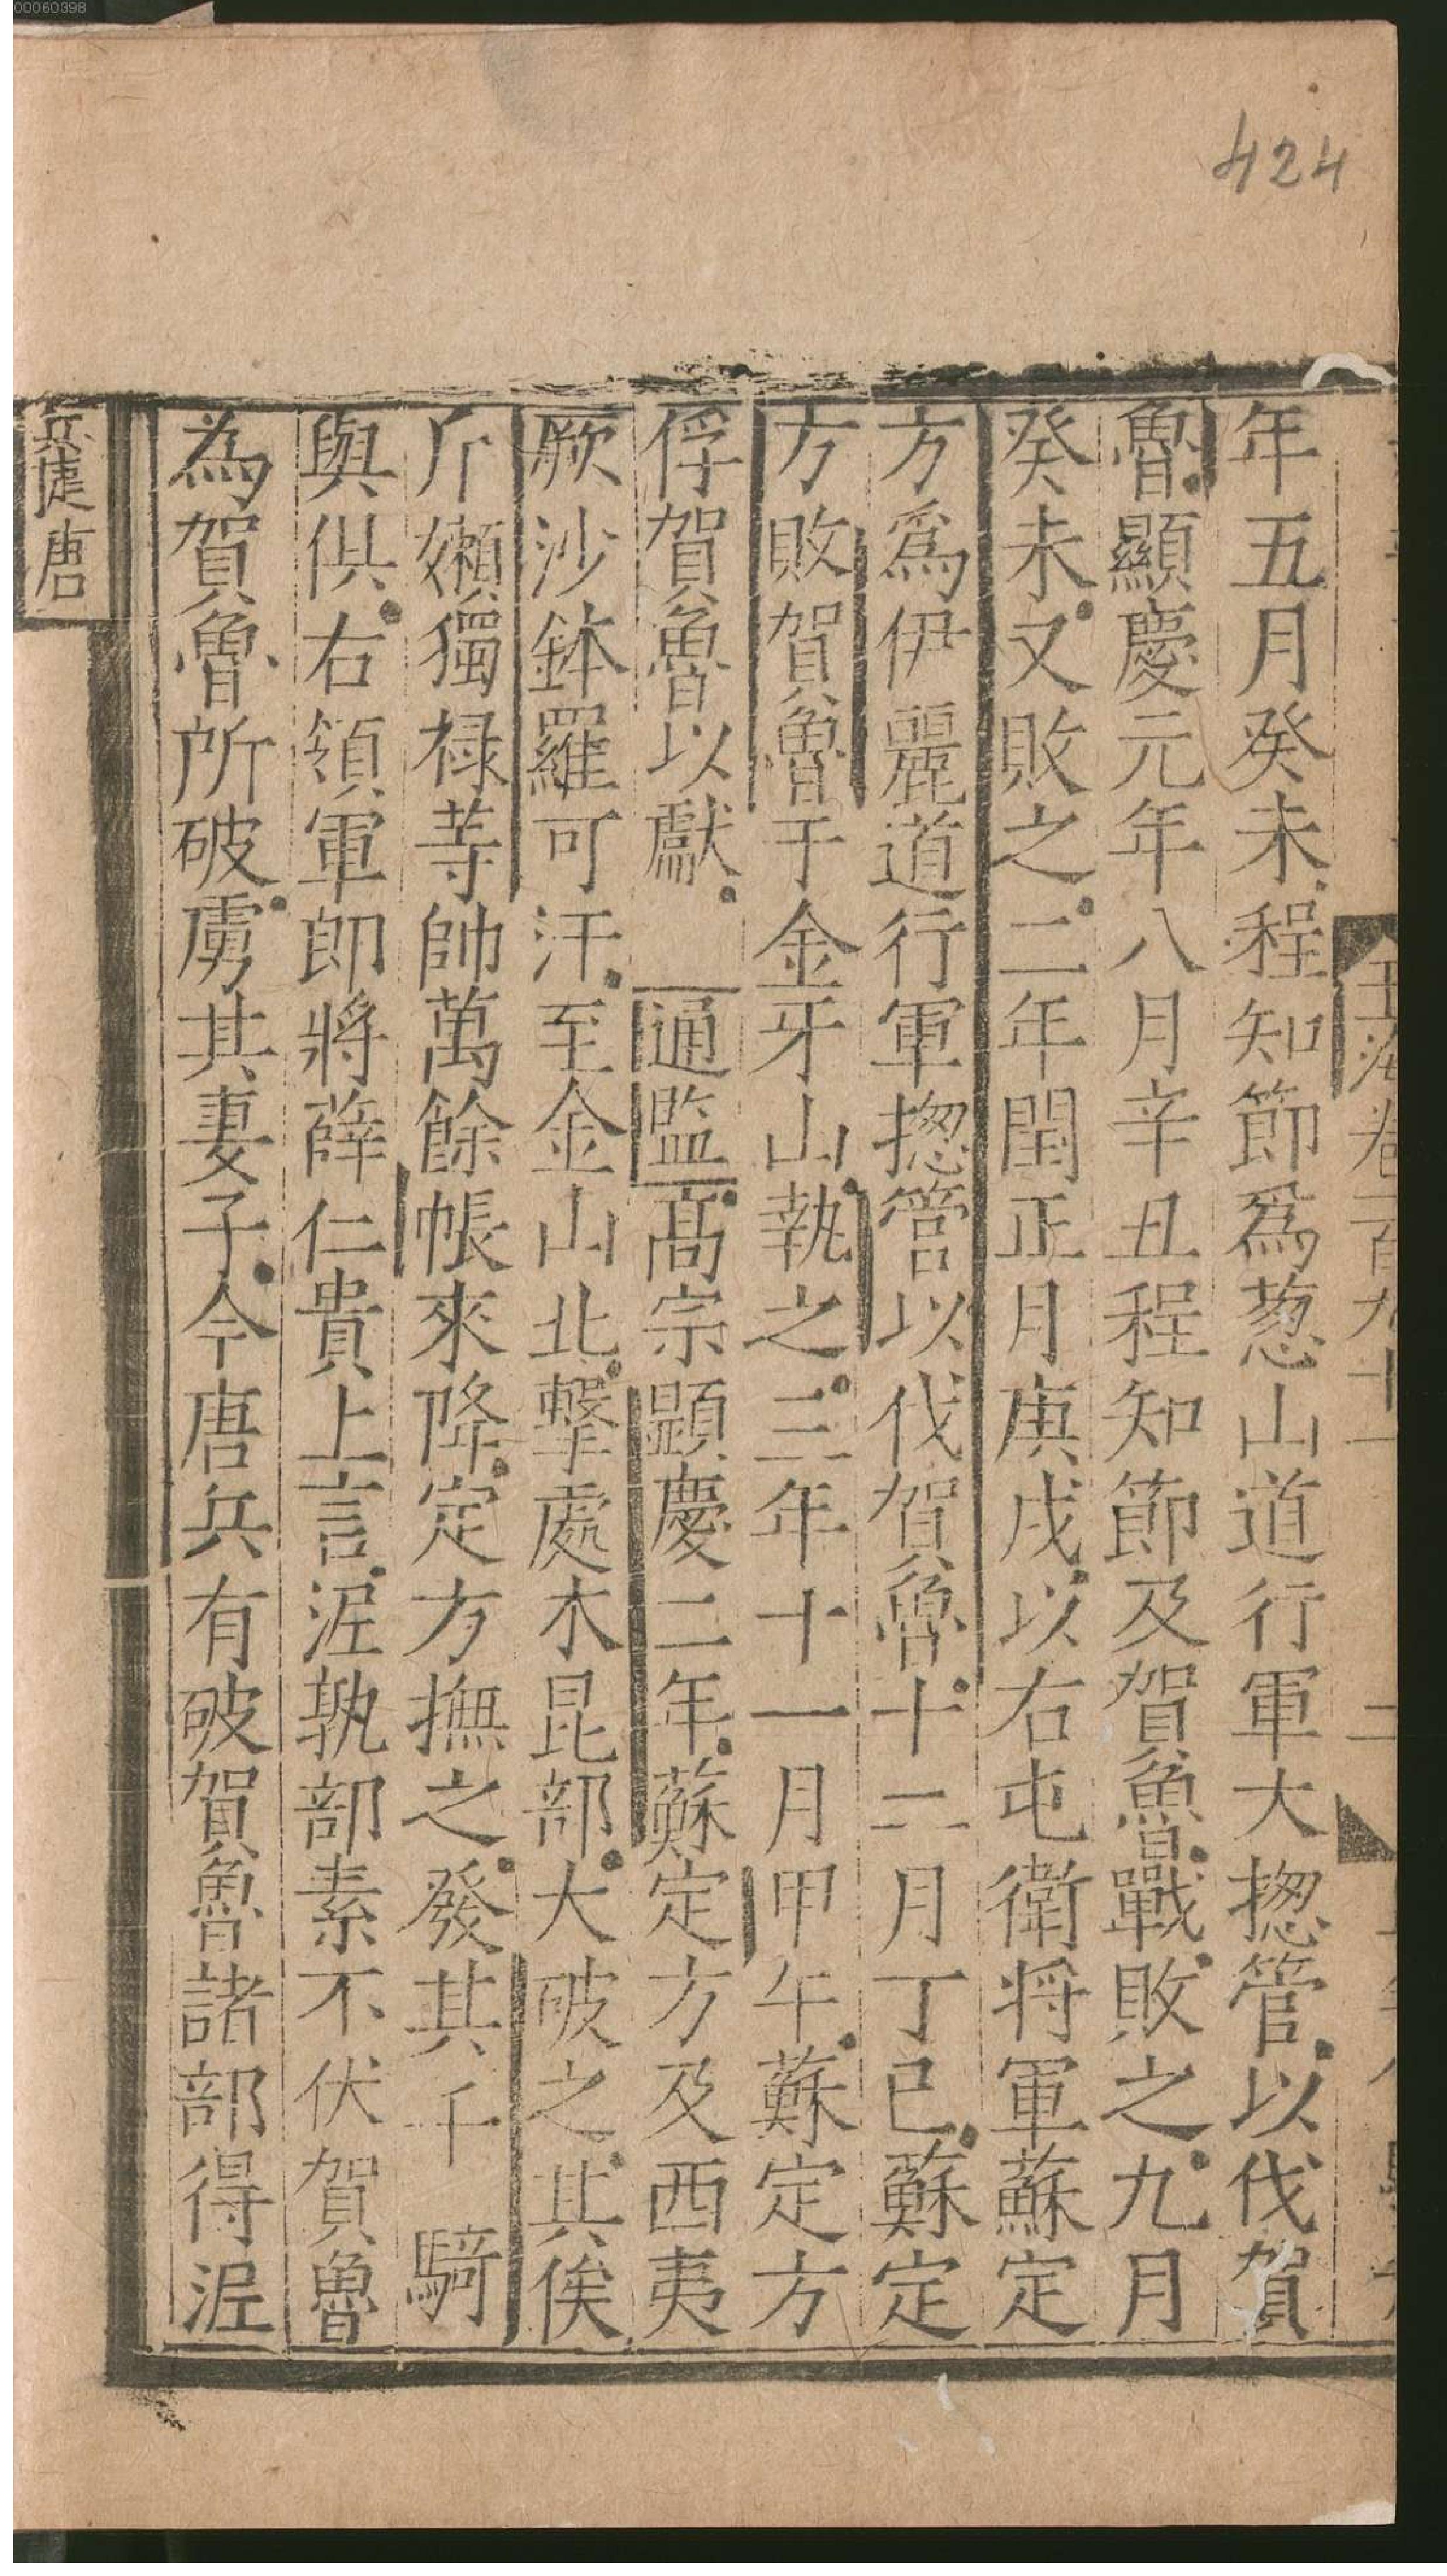 00060398
424
年五月癸未程知節爲葱山道行軍大揔管以伐賀
魯顯慶元年八月辛丑程知節及賀魯戰敗之九月
癸未又敗之二年閏正月庚戌以右屯衛将軍蘇定
方爲伊麗道行軍揔管以伐賀魯十二月丁巳蘇定
方敗賀魯于金牙山執之三年十一月甲午蘇定方
俘賀魯以獻 通監髙宗顯慶二年蘇定方及西夷
厥沙鉢羅可汗至金山北擊處木昆部大破之其俟
斤嬾獨祿等帥萬餘帳來降定方撫之發其千騎
與俱右領軍郎將薛仁貴上言泥孰部素不伏賀魯
為賀魯所破虜其妻子今唐兵有破賀魯諸部得泥
兵捷唐
玉海卷百九十一 二